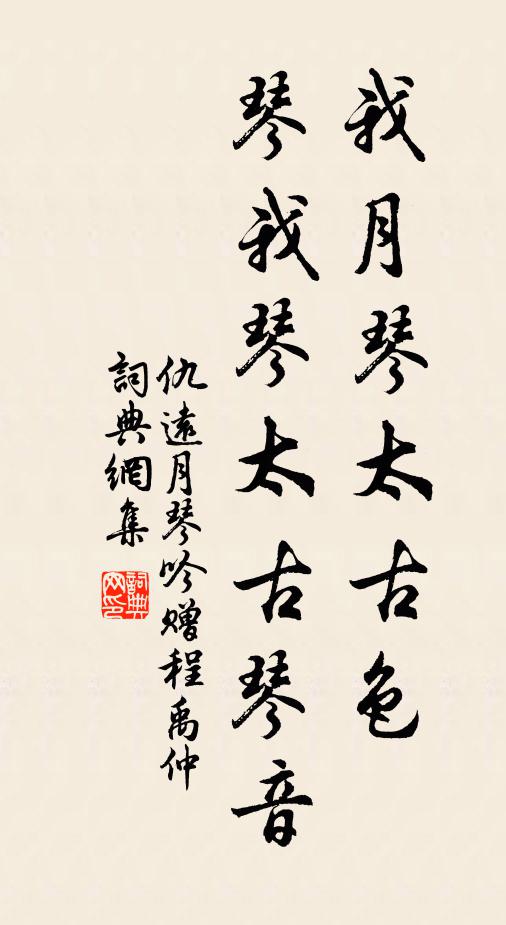 我月琴太古色
琴我琴太古琴音
仇遠月琴吟赠程禹仲
詞典網集
詞典网印